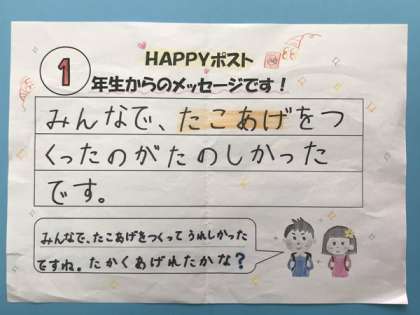 HAPPYポスト
1年生からのメッセージです！
みんなで、たこあげをつ
くったのがたのしかった
です。
みんなで、たこあげをつくって うれしかった
ですね。たかくあげれたかな？